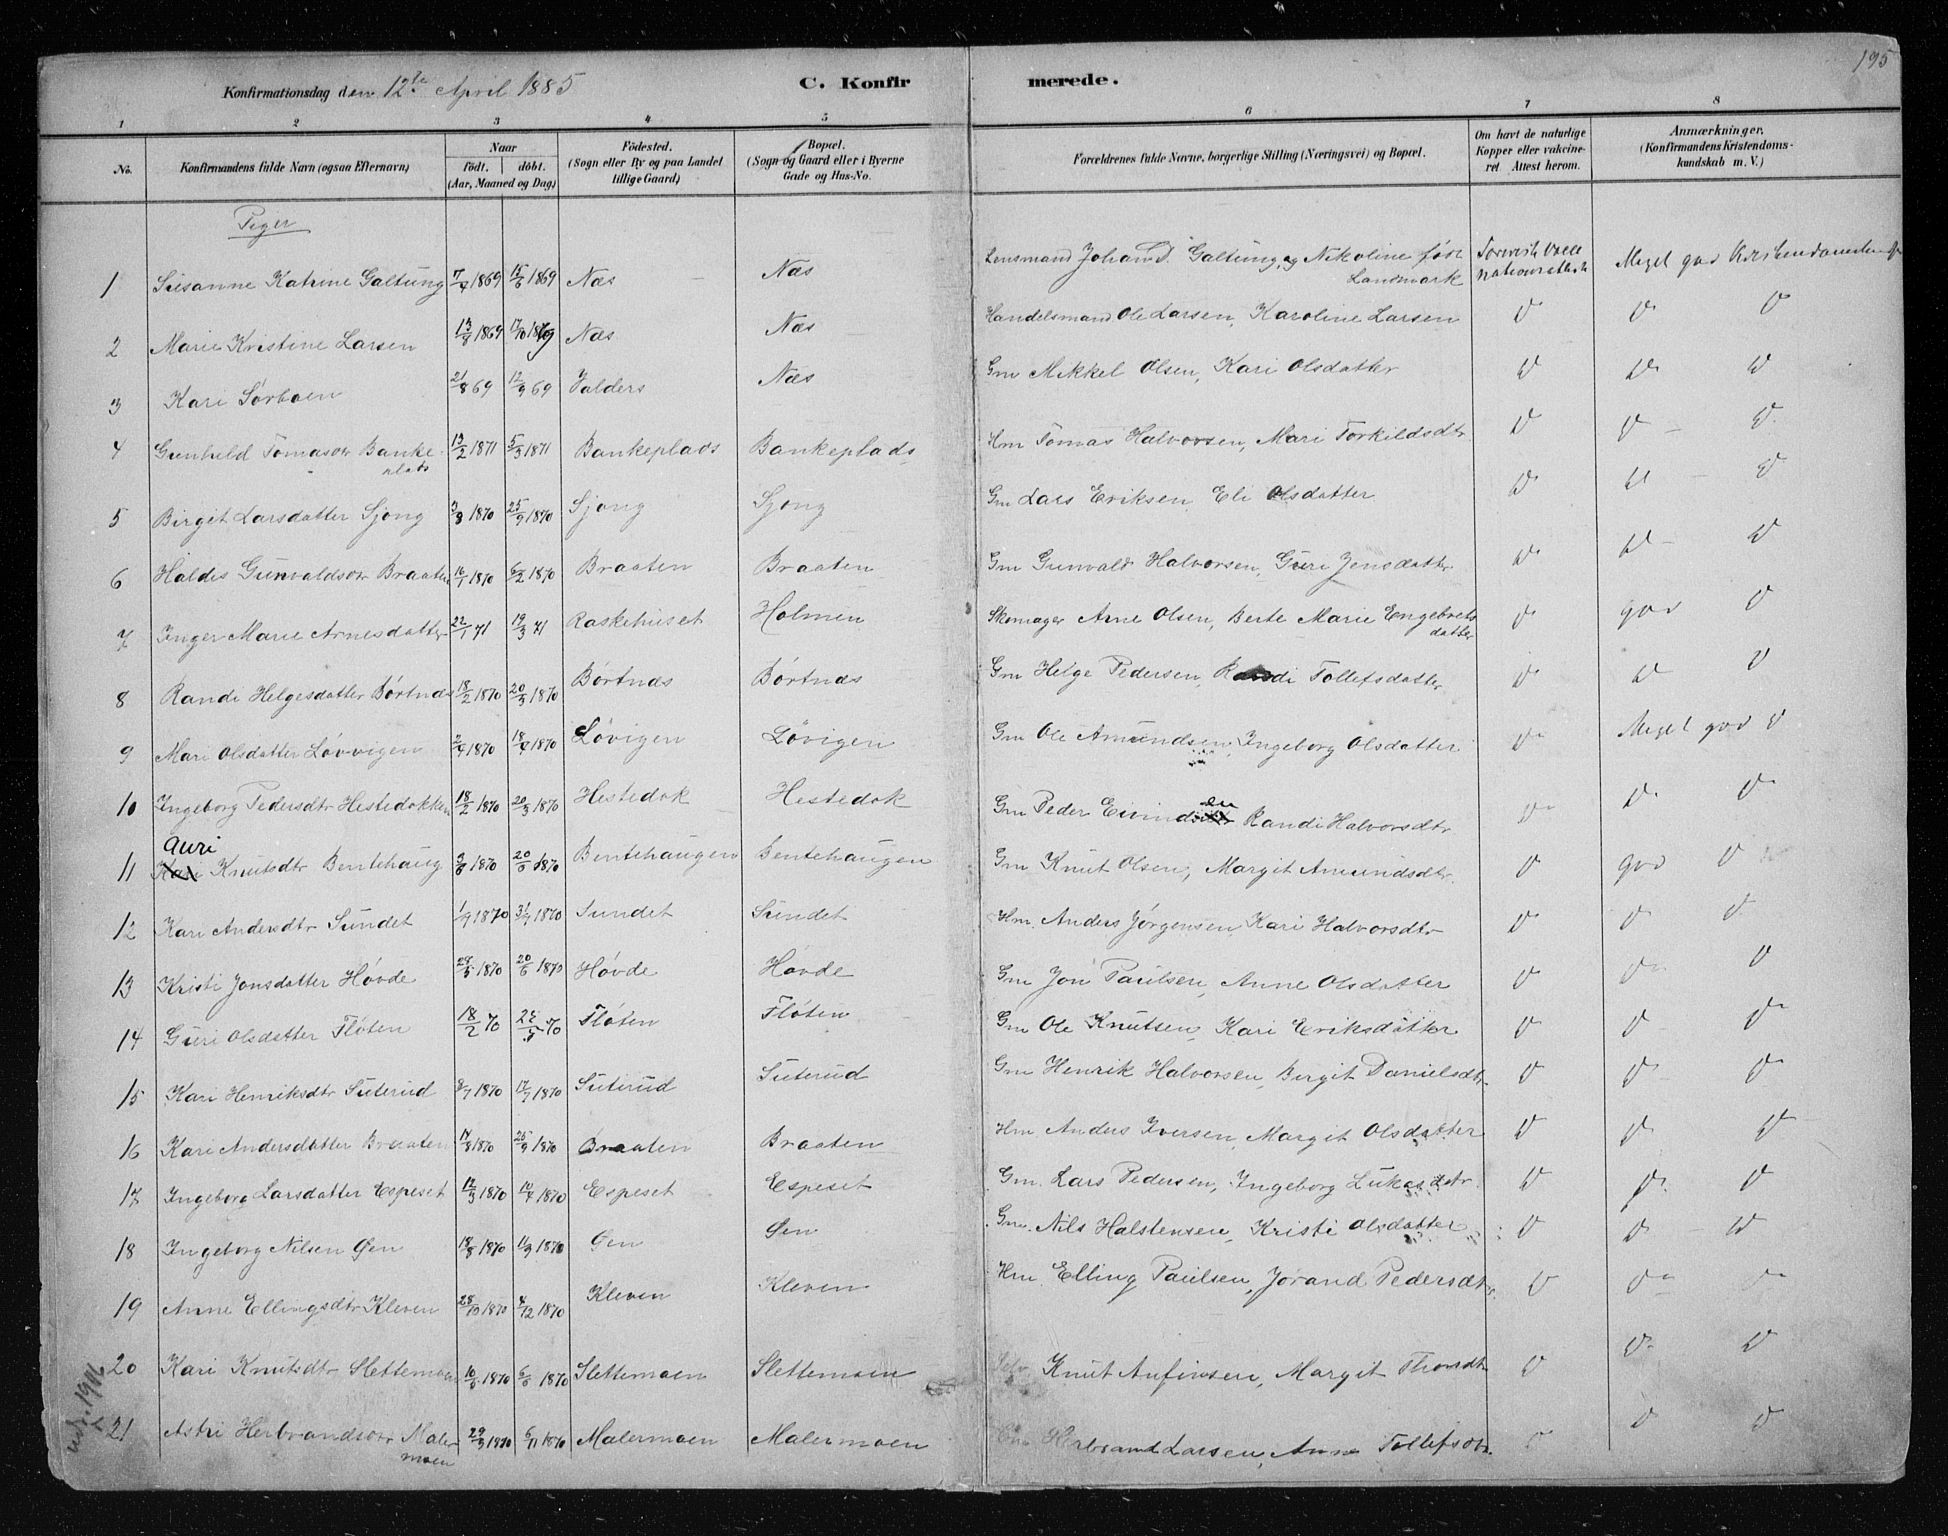 195
Konfirmationsdag den 12te April 1885
C. Konfirmerede.
1 2 3 4 5 6 7 8
No. Konfirmandens fulde Navn (ogsaa Efternavn) Naar født. døbt. (Aar, Maaned og Dag) Fødested. (Sogn eller By og paa Landet tillige Gaard) Bopæl. (Sogn og Gaard eller i Byerne Gade og Hus-No. Forældrenes fulde Navne, borgerlige Stilling (Næringsvei) og Bopæl. Om havt de naturlige Kopper eller vakcineret Attest herom. Anmærkninger. (Konfirmandens Kristendomskundskab m. V.)
Piger
1 Susanne Katrine Galtung 7/4 1869 15/6 1869 Næs Næs Lensmand Johan D. Galtung og Nikoline født Landmark Meget god
2 Marie Kristine Larsen 13/8 1869 17/10 1869 Næs Næs Handelsmand Ole Larsen, Karoline Larsen
3 Kari Sørboen 21/8 69 12/9 69 Valders Næs Gm Mikkel Olsen, Kari Olsdatter
4 Gunhild Tomasdr Bankeplads 13/2 1871 5/3 1871 Bankeplads Bankeplads Hm Tomas Halvorsen, Mari Torkildsdtr
5 Birgit Larsdatter Sjong 1870 25/9 1870 Sjong Sjong Gm Lars Eriksen, Eli Olsdatter
6 Haldis Gunvaldsdr Braaten 16/1 1870 6/2 1870 Braaten Braaten Gm Gunvald Halvorsen, Guri Jensdatter
7 Inger Marie Arnesdatter 22/1 71 19/3 71 Raskehuset Holmen Skomager Arne Olsen, Berte Marie Engebretsdatter god
8 Randi Helgesdatter Børtnæs 18/2 1870 20/3 1870 Børtnæs Børtnæs Gm Helge Pedersen, Randi Tollefsdatter
9 Mari Olsdatter Løvvigen 2/4 1870 18/4 1870 Løvigen Løvigen Gm Ole Amundsen, Ingeborg Olsdatter Meget god
10 Ingeborg Pedersdtr Hestedokken 18/2 1870 20/3 1870 Hestedok Hestedok Gm Peder Eivindsen Randi Halvorsdtr
11 Guri Knutsdtr Bentehaug 1870 20/6 1870 Bentehaugen Bentehaugen Gm Knut Olsen, Margit Amundsdtr. god
12 Kari Andersdtr Sundet 1/9 1870 1870 Sundet Sundet Hm. Anders Jørgensen, Kari Halvorsdtr
13 Kristi Jonsdatter Høvde 29/5 1870 20/6 1870 Høvde Høvde Gm Jon Paulsen, Anne Olsdatter
14 Guri Olsdatter Fløten 18/2 70 70 Fløten Fløten Gm Ole Knutsen, Kari Eriksdatter
15 Kari Henriksdtr Suterud 1870 17/7 1870 Suterud Suterud Gm Henrik Halvorsen, Birgit Danielsdtr
16 Kari Andersdatter Braaten 1870 25/9 1870 Braaten Braaten Hm Anders Iversen, Margit Olsdatter
17 Ingeborg Larsdatter Espeset 12/3 1870 10/4 1870 Espeset Espeset Gm. Lars Pedersen, Ingeborg Lukasdtr.
18 Ingeborg Nilsen Øen 18/8 1870 11/9 1870 Øen Øen Gm. Nils Halstensen, Kristi Olsdatter
19 Anne Ellingsdtr Kleven 28/10 1870 4/12 1870 Kleven Kleven Hm. Elling Paulsen, Jørand Pedersdtr.
20 Kari Knutsdtr Slettemoen 1870 1870 Slettemoen Slettemoen Knut Anfinsen, Margit Thorsdtr
21 Astri Herbrandsdr Malermoen 29/9 1870 6/11 1870 Malermoen Malermoen Herbrand Larsen, Anne Tollefsdtr